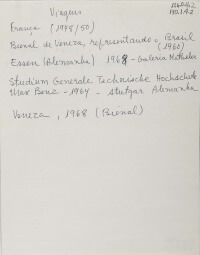 Viagens
França (1948/50)
Bienal de Veneza, representando o Brasil
(1960)
Essen (Alemanha) 1968 - Galeria
Studium Generale Technische Hochschule
Max Benz - 1964 - Stutgar Alemanha
Veneza, 1968 (Bienal)